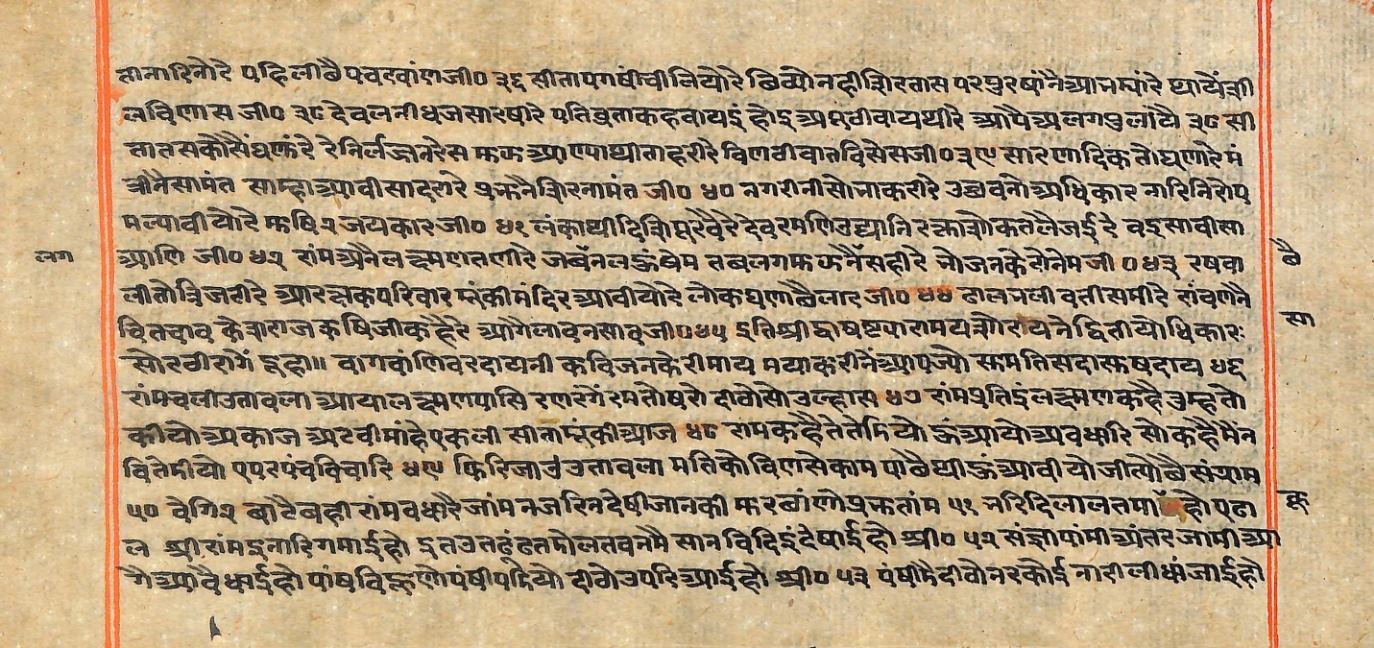 तानारिनोरे पहिलीछै पचवांण जी० ३६ सीतापगषांची लियोरे छिब्यो नही सिरतास परपुरषांनै आभडयांरे थायेंसी
लविणास जी० ३८ देवलनी धजसारषीरे पतिव्रताकहवाय हो अणवीवाय थीरे आपै अलगपुलांयै ३८ सी
तातसकौसैं घणूंरे रे निर्लजनरेस मकक आण्या थी ताहरीरे विणठीवातविसेस जी० ३९ सारणादिक तो घणारे मं
त्रीनै सामंत साम्हा आवी सादरारे प्रभुनै सिरनामंत जी० ४० नगरीनी सोभा करीरे उछवनो अधिकार नारिनिरोप
मल्यावीयोरे मुषि२ जयकार जी० ४१ लंकाथी दिसि पुरवैरे देवरमणि उद्यानि रक्तासोकतलै जईरे बइसावीसा
आणि जी० ४२ रांम अनै लछमणतणीरे जबनलऊं षेम तबलगमुझनैंसहीरे भोजनकेरोनेम जी० ४३ रषवा
लीतोत्रिजटीरे आरक्षकपरिवार मूंकीमंदिर आवीयोरे लोकघणाछैलार जी० ४४ ढालभली बत्तीसमीरे रांवणनै
चितचाव केसराजऋषिजी कहैरे आगैलाबनसाव जी० ४५ इति श्री ढालषष्ट्या रामयशोरसायने द्वितीयोधिकारः
सोरठीरागें दूहा॥ वागवांणि वरदायनी कविजनकेरीमाय मयाकरीनें आपज्यो सुमतिसदासुषदाय ४६
रांमचलीउतावला आयालछमणपासि रणरंगें रमतोषरो दीठोसोउल्हास ४७ रांमप्रतिइं लछमणकहै तुम्हतो
कीयोअकाज अटवीमांहे एकली सीतामूंकीआज ४८ रामकहै तैंतेडियो ऊं आयो अवधारि सोकहैमैंन
वितेडीयो एपरपंचविचारि ४९ फिरिजाउं उतावला मतिकोविणसेकाम पाछैथी ऊं आवीयो जीत्योछै संग्राम
५० वेगि२ वाटैवही रांमवधारैजांम नजरिनदेषीजानकी मुरछांणोप्रभुतांम ५१
ल श्रीरांमइनारिगमाईहो इतउतढूंढतडोलतवनमै सानविदिइंदेषाईहो श्री० ५२ संज्ञापांमी अंतरजामी आ
गै आवैधाईहो पांषविहूणोपंषीपडियो दीठोउपरिआईहो श्री० ५३ पंषीडैदीठोनरकोई नारीलीधांजाईहो
लग
छै
सा
कू